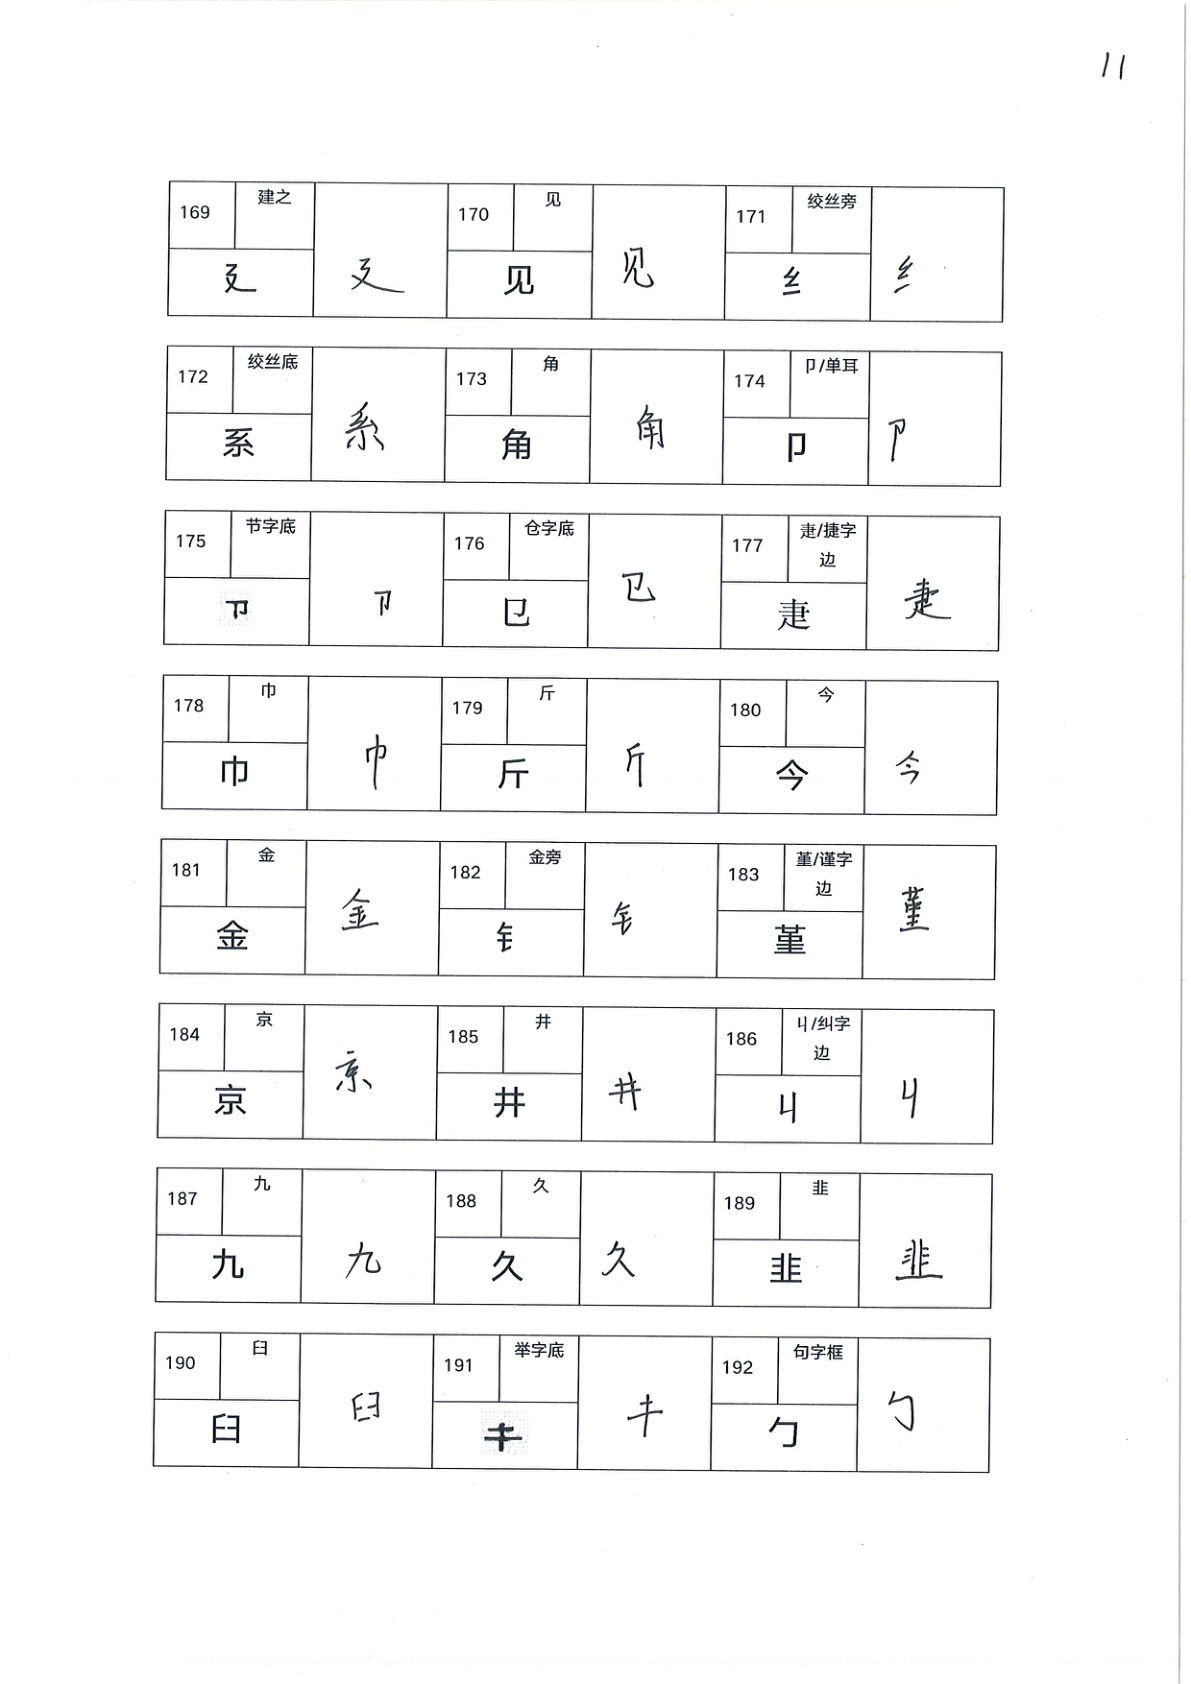 11
169 建之 廴 廴 170 见 见 见 171 绞丝旁 纟 纟
172 绞丝底 系 糸 173 角 角 角 174 卩/单耳 卩 卩
175 节字底 卩 卩 176 仓字底 㔾 㔾 177 疌/捷字边 疌 疌
178 巾 巾 巾 179 斤 斤 斤 180 今 今 今
181 金 金 金 182 金旁 钅 钅 183 堇/谨字边 堇 堇
184 京 京 京 185 井 井 井 186 丩/纠字边 丩 丩
187 九 九 九 188 久 久 久 189 韭 韭 韭
190 臼 臼 臼 191 举字底 192 句字框 勹 勹